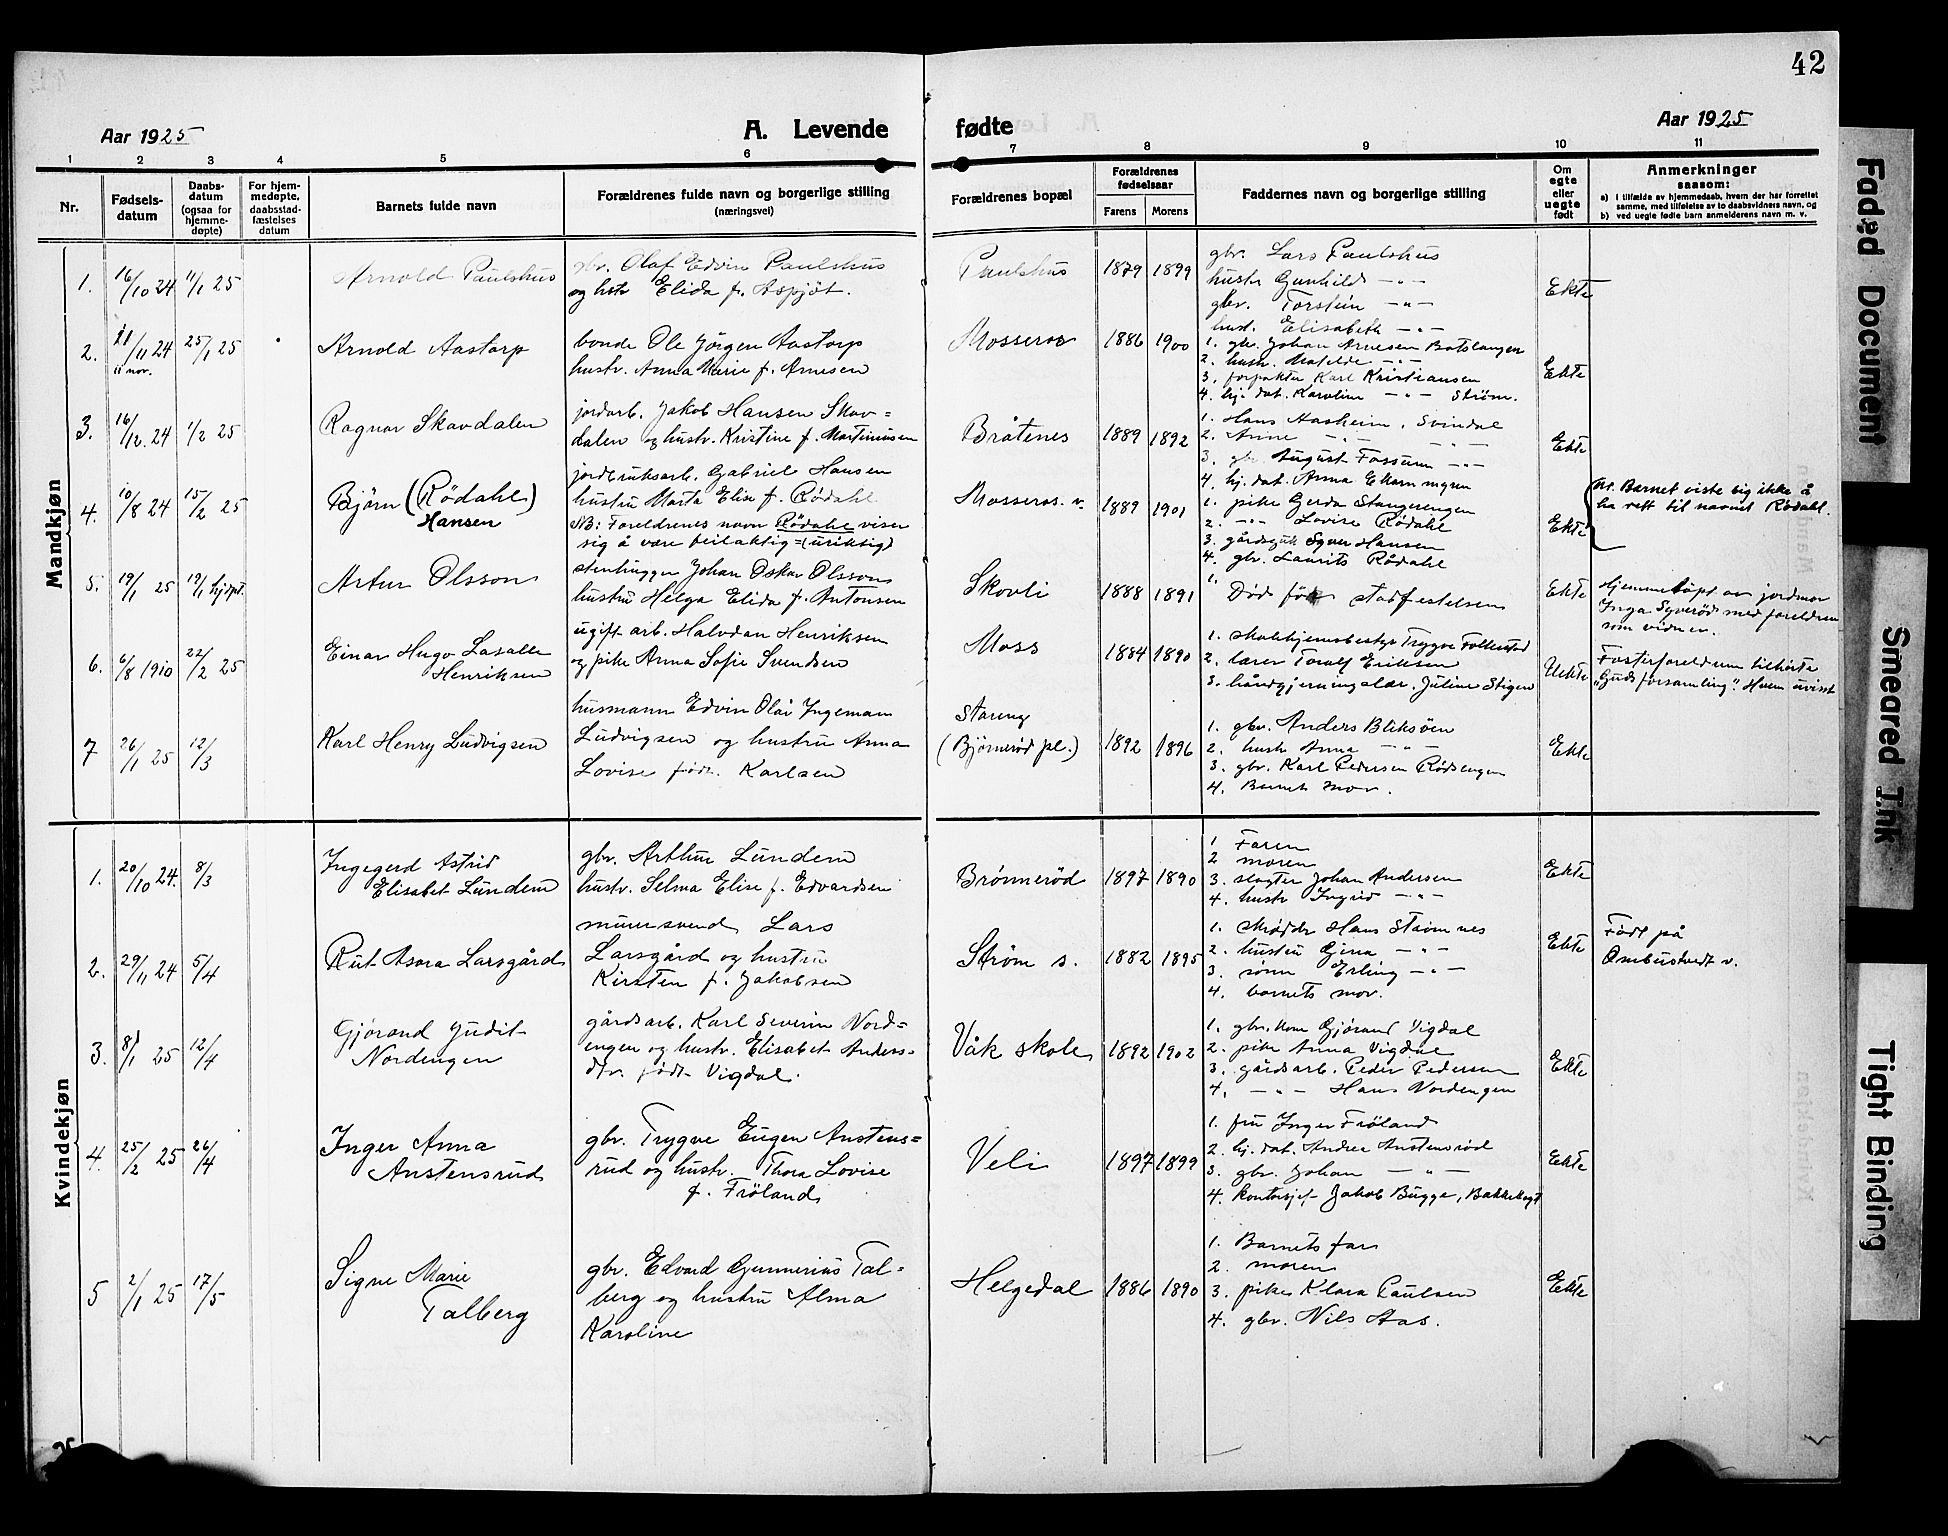 42
Aar 1925
A. Levende fødte
Aar 1925
1 2 3 4 5 6 7 8 9 10 11
Nr.
Fødsels-
datum
Daabs-
datum
(ogsaa for
hjemme-
døpte)
For hjem-
medøpte,
daabsstad-
fæstelses
datum
Barnets fulde navn
Forældrenes fulde navn og borgerlige stilling
(næringsvei)
Forældrenes bopæl
Forældrenes
fødselsaar
Farens Morens
Faddernes navn og borgerlige stilling
Om
egte
eller
uegte
født
Anmerkninger
saasom:
a) I tilfælde av hjemmedaab, hvem der har forrettet
samme, med tilføielse av to daabsvidners navn, og
b) ved uegte fødte barn anmelderens navn m. v.
Mandkjøn
1. 16/10 24 11/1 25
Arnold Paulshus
gbr. Olaf Edvin Paulshus
og hstr Elida f. Aspjøt.
Paulshus
1879 1899
gbr. Lars Paulshus
hustr Gunhild - " -
gbr. Torstein - " -
hust. Elisabeth - " -
Ekte
2. 11/11 24 25/1 25
11 nov.
Arnold Aastorp
bonde Ole Jörgen Aastorp
hustr. Anna Marie f. Arnesen
Mosseros
1886 1900
1. gbr. Johan Arnesen Botslangen
2. hustr. Mafelde - " -
3. forpakter Karl Kristiansen
4. hj. dat. Karoline - " - Strøm.
Ekte
3. 16/12 24 1/2 25
Ragnar Skavdalen
jordarb. Jakob Hansen Skav=
dalen og hustr. Kristine f. Martiniusen
Bråtenes
1889 1892
1. Hans Aasheim, Svindal
2. Anne - " - - " -
3. gbr August Fossum - " -
4. hj. dat. Anna Ekornmyren
Ekte
4. 10/8 24 15/2 25
Björn (Rödahl)
Hansen
jordbruksarb. Gabriel Hansen
hustru Marta Elise f. Rödahl
NB: Foreldrenes navn Rödahl viser
sig å være feilaktig = (uriktig)
Mosseros. v.
1889 1901
1. pike Gerda Stangerengen
2. - " - Lovise Rödahl
3. gårdsgut Syver Hansen
4. gbr. Laurits Rådahl
Ekte
Nt. Barnet viste sig ikke å
ha rett til navnet Rödahl.
5. 19/1 25 19/1 hjdpt.
Artur Olsson
stenhugger Johan Oskar Olsson
hustru Helga Elida f. Antonsen
Skovli
1888 1891
1.
Död för stadfestelsen
Ekte
Hjemmedöpt av jordmor
Inga Syveröd med foreldren
som vidner.
6. 6/8 1910 22/2 25
Einar Hugo Lasalle
Henriksen
ugift arb. Halvdan Henriksen
og pike Anna Sofie Svendsen
Moss
1884 1890
1. skolehjemsbestyr Trygve Folkestad
2. lærer Toralf Eriksen
3. håndgjerningslær. Juline Stigen
Uekte
Fosterforeldrene tilhörte
"Guds forsamling". Hvem uvisst
7 26/1 25 12/3
Karl Henry Ludvigsen
husmann Edvin Olai Ingemann
Ludvigsen og hustru Anna
Lovise född. Karlsen
Stareng
(Björnerød pl.)
1892 1896
1. gbr. Anders Bliksöen
2. hustr Anna - " -
3. gbr. Karl Pedersen Rödsengen
4. Barnets mor.
Ekte
Kvindekjøn
1. 20/10 24. 8/3
Ingegerd Astrid
Elisabet Lundem
gbr. Arthur Lundem
hustr. Selma Elise f. Edvardsen
Brönnerød
1897 1890
1. Faren
2 moren
3. slagter Johan Andersen
4. hustr Ingrid - " -
Ekte
2. 29/11 24 5/4
Rut Asora Larsgård
murersvend Lars
Larsgård og hustru
Kirsten f. Jakobsen
Strøm s.
1882 1895
1. skrædder Hans Strömnes
2. hustru Gina - " -
3. sønn Erling - " -
4. barnets mor.
Ekte
Född på
Ombustvedt v.
3. 8/1 25 12/4
Gjörand Judit
Nordengen
gårdsarb. Karl Severin Nord=
engen og hustr. Elisabet Anders=
dtr. född Vigdal.
Våk skole
1892 1902
1. gbr. kone Gjörand Vigdal
2. pike Anna Vigdal
3. gårdsarb. Peder Pedersen
4. - " - Hans Nordengen
Ekte
4. 25/2 25 26/4
Inger Anna
Anstensrud
gbr. Trygve Eugen Anstens=
rud og hustr. Thora Lovise
f. Fröland
Veli
1897 1899
1. fru Inger Fröland
2. hj. dat. Andrea Anstensröd
3. gbr. Johan - " -
4. kontorsjef Jakob Bugge, Bakkehagt
Ekte
5 2/1 25 17/5
Signe Marie
Talberg
gbr. Edvard Gunnerius Tal=
berg og hustru Alma
Karoline
Helgedal
1886 1890
1. Barnets far
2. moren
3. pike Klara Paulsen
4. gbr. Nils Aas.
Ekte
Faded Document
Smeared Ink
Tight Binding